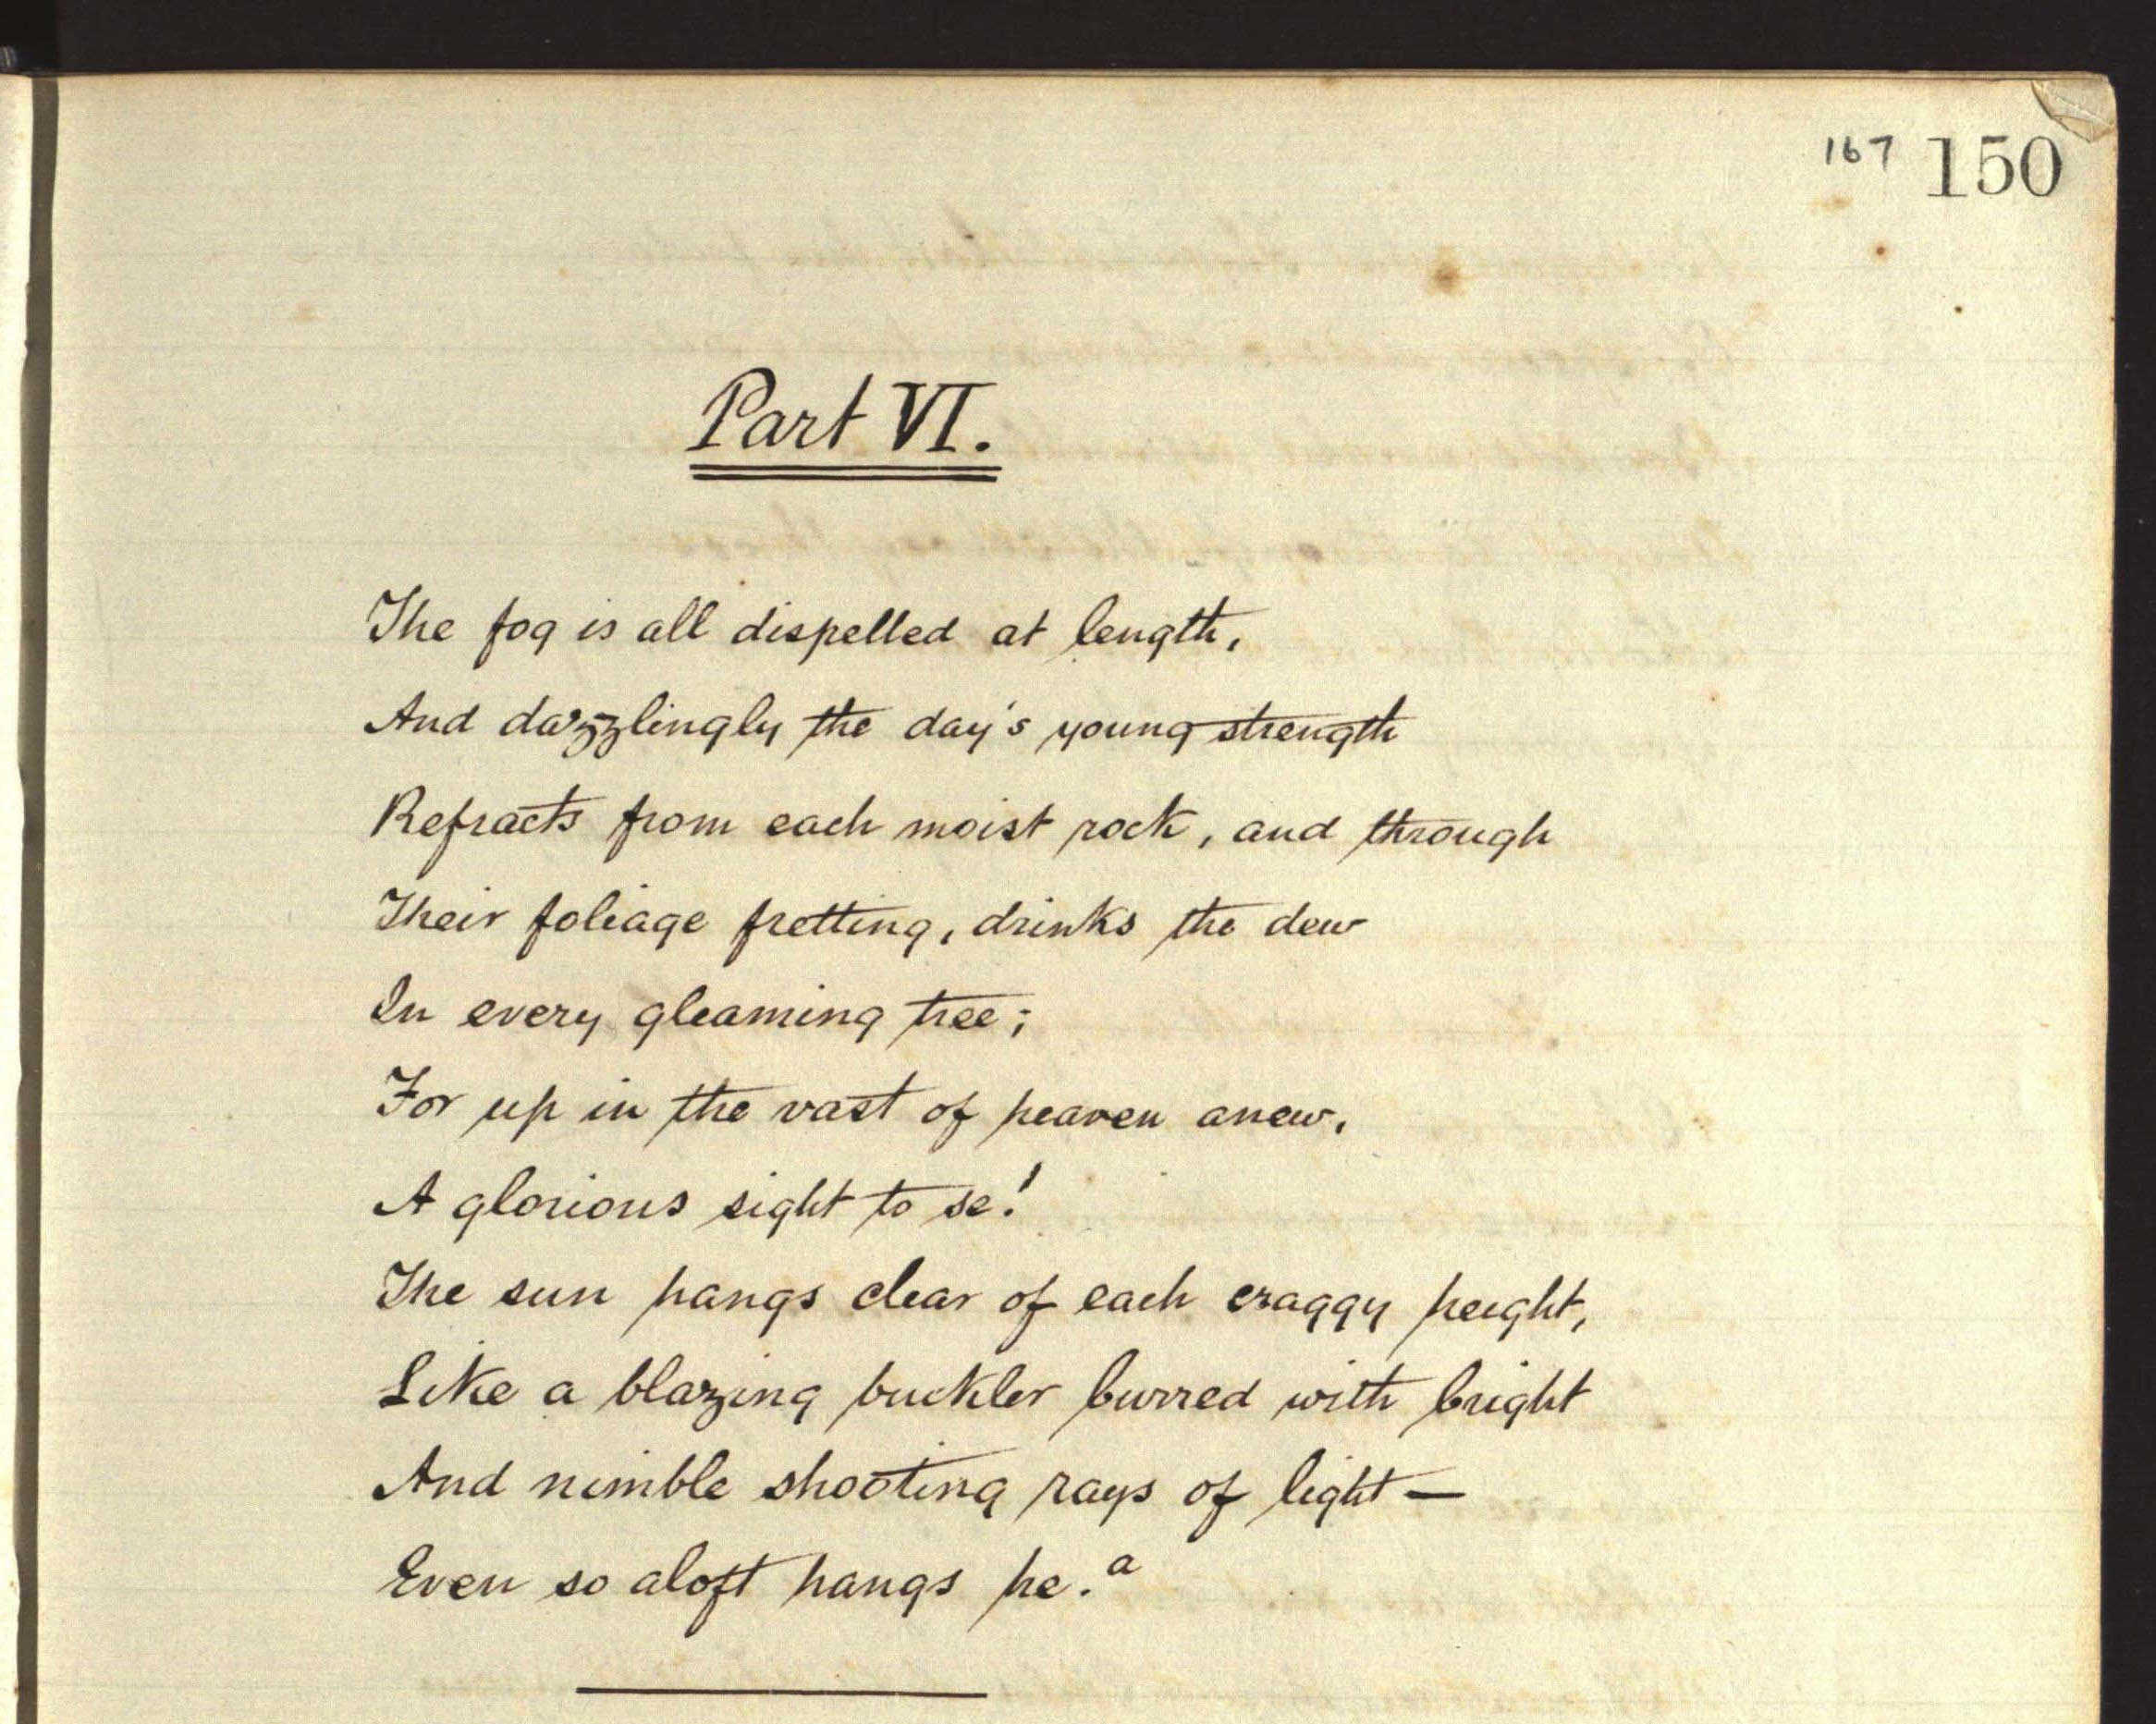 167 150
Part VI.
The fog is all dispelled at length,
And dazzlingly the day's young strength
Refracts from each moist rock, and through
Their foliage fretting, drinks the dew
In every gleaming tree;
For up in the vast of heaven anew,
A glorious sight to se!
The sun hangs clear of each craggy height,
Like a blazing buckler burred with bright
And nimble shooting rays of light —
Even so aloft hangs he. a